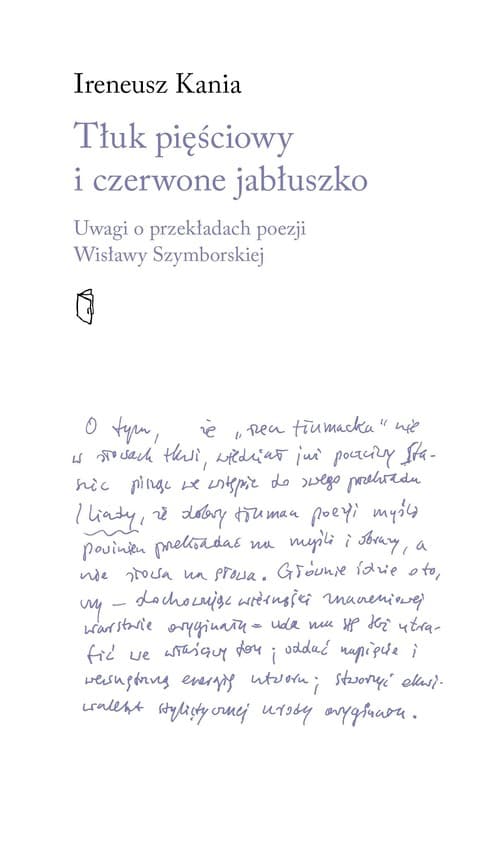 Ireneusz Kania
Tłuk pięściowy
i czerwone jabłuszko
Uwagi o przekładach poezji
Wisławy Szymborskiej
O tym, że „rzecz tłumacka” nie
w słowach tkwi, wiedział już poczciwy Sta-
nic pisząc we wstępie do swego przekładu
Iliady, iż dobry tłumacz poezji myśli
powinien przekładać na myśli i obrazy, a
nie słowa na słowa. Głównie idzie o to,
czy – dochowując wierności znaczeniowej
warstwie oryginału – uda mu się też utra-
fić we właściwy ton; oddać napięcie i
wewnętrzną energię utworu; stworzyć ekwi-
walent stylistycznej urody oryginału.